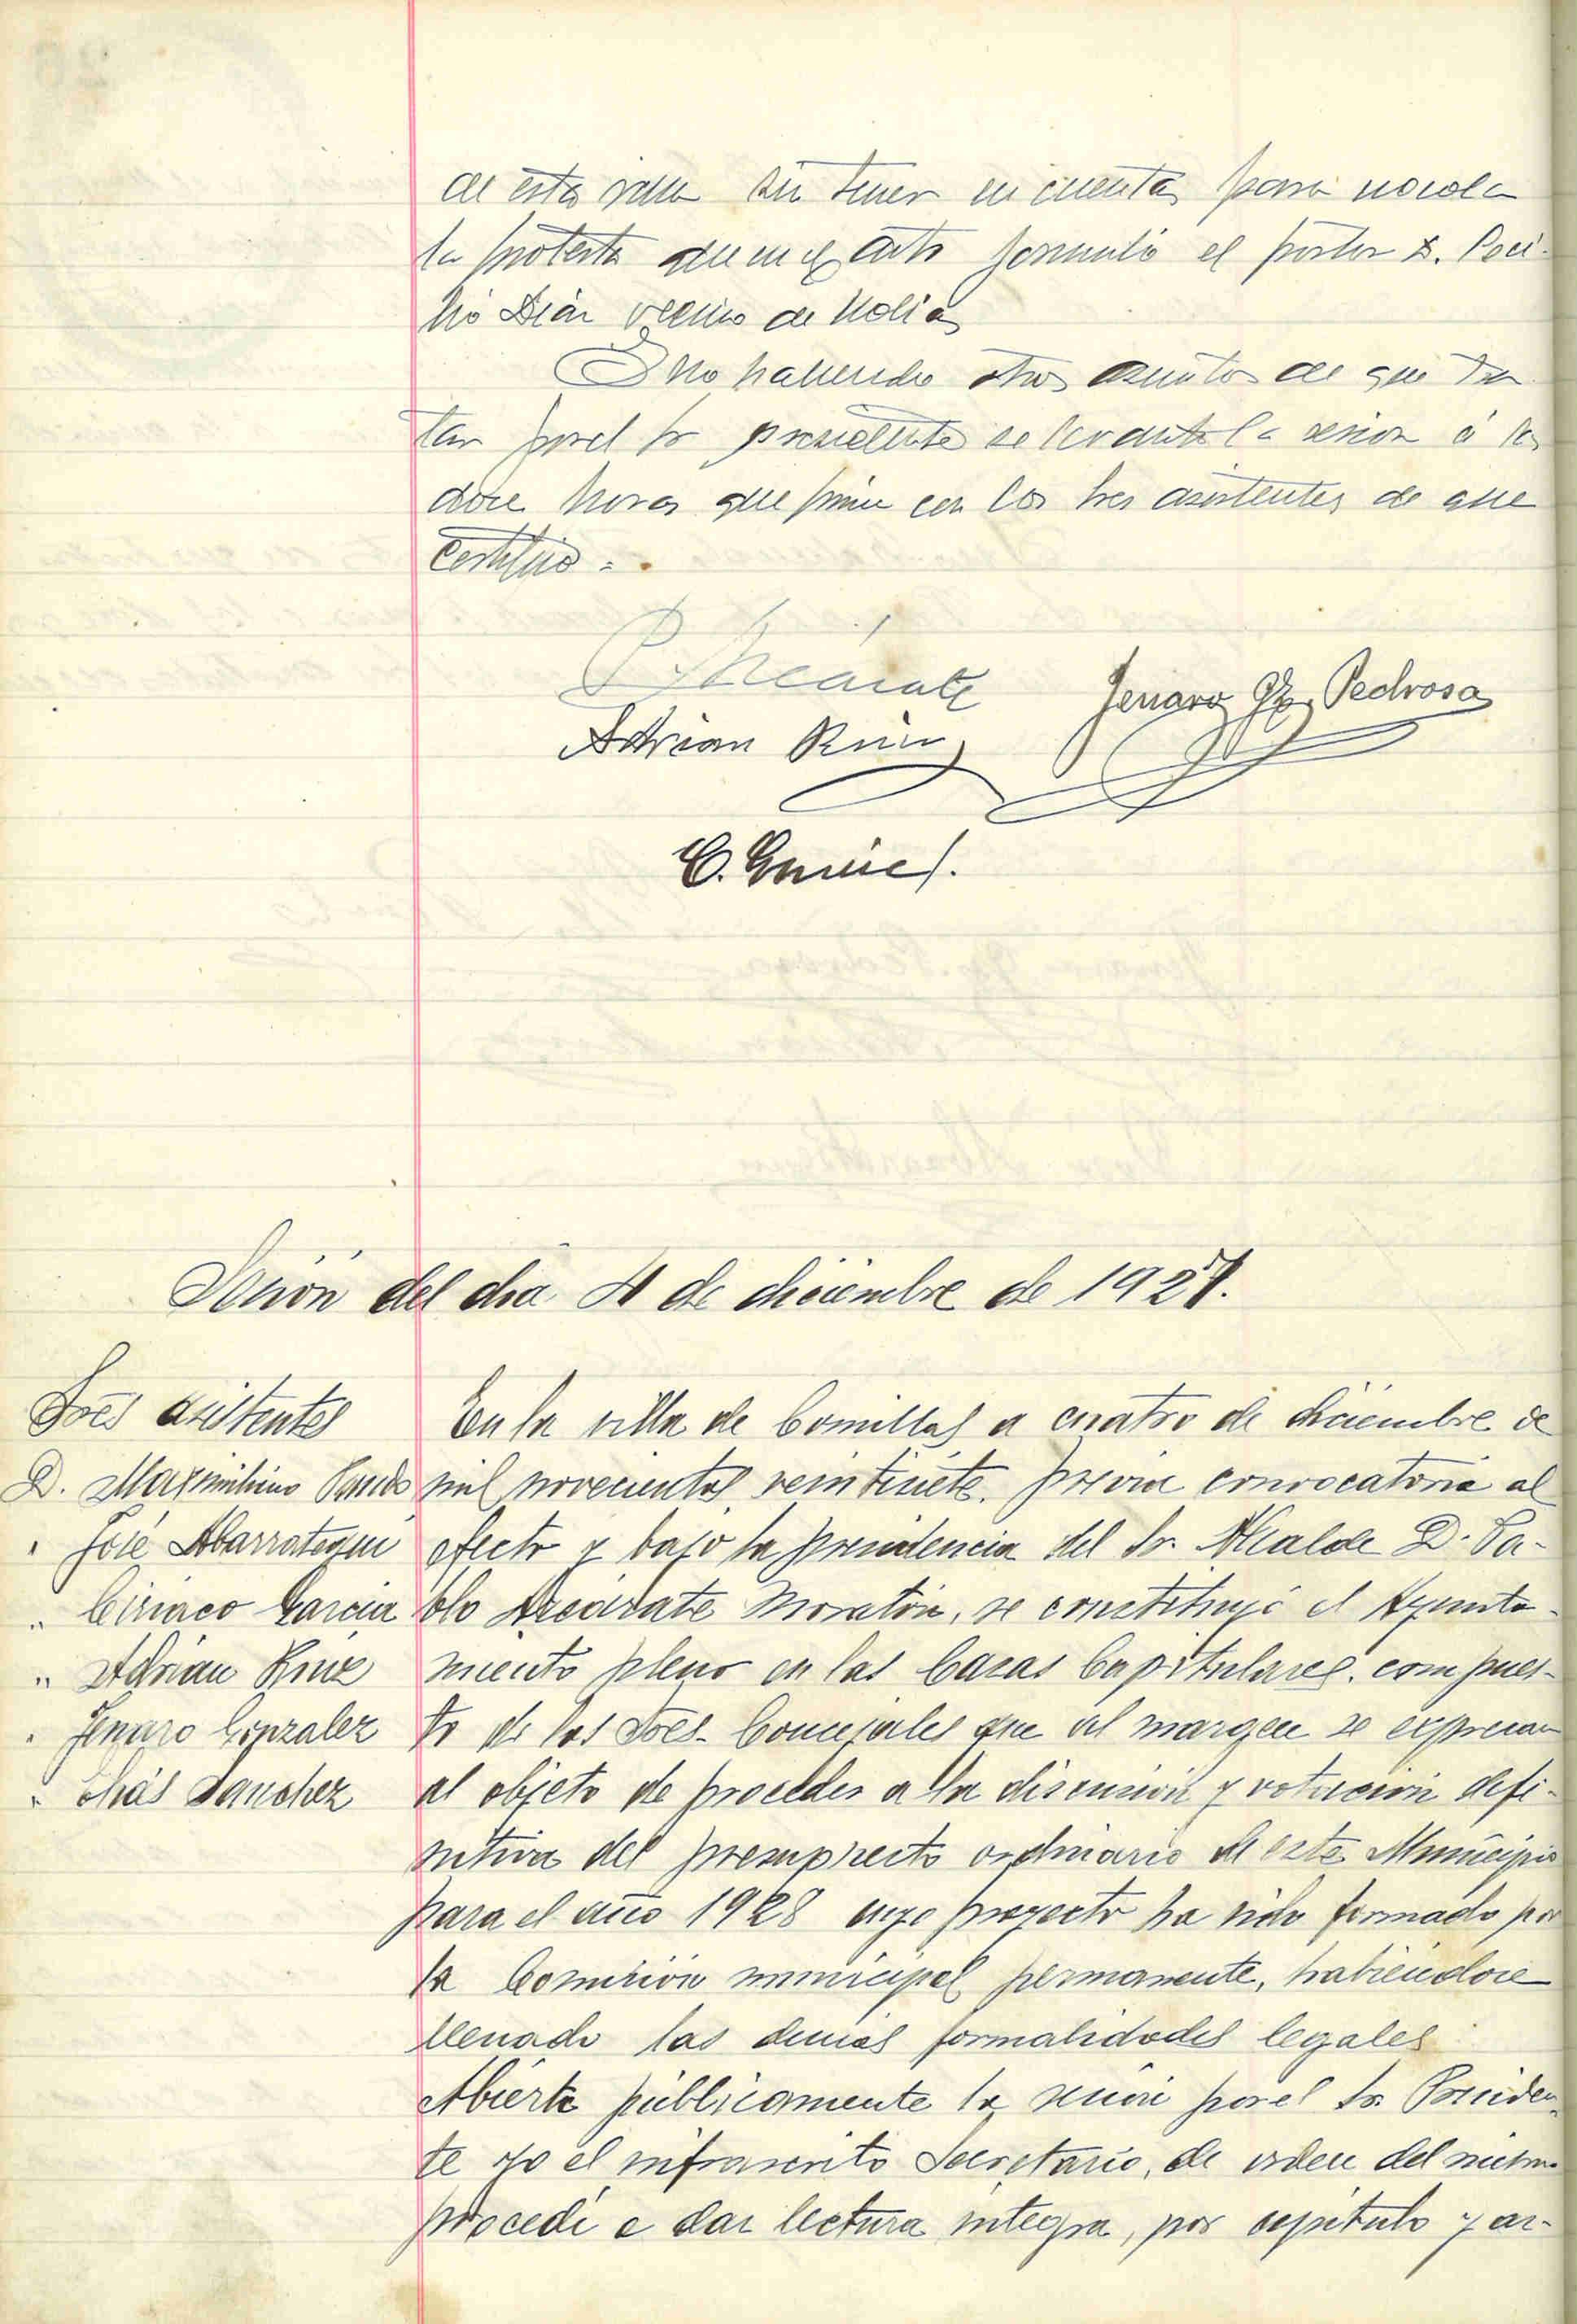 de esta villa sin tener en cuenta para nada
la protesta que en el acto formuló el postor D.
Díaz vecino de
Y no habiendo otros asuntos de que tra
tar por el Sr presidente se levanta la sesion á las
doce horas que firma con los Sres asistentes de que
certifico =
P. Azcárate
Jenaro Gz. Pedrosa
Adrian Ruiz
Sesión del día 4 de diciembre de 1927.
Sres asistentes
D. Maximilino Pando
" José Abarrategui
" Ciriaco Garcia
" Adrian Ruiz
" Jenaro Gonzalez
" Sanchez
En la villa de Comillas a cuatro de diciembre de
mil novecientos veintisiete. previa convocatoria al
efecto y bajo la presidencia del Sr. Alcalde D. Pa-
blo Azcárate Moratón, se constituyó el Ayunta-
miento pleno en las Casas Capitulares. compues-
to de los Sres. Concejales que al margen se expresan
al objeto de proceder a la discusión y votación defi-
nitiva del presupuesto ordinario de este Municipio
para el año 1928 cuyo proyecto ha sido formado por
la Comisión municipal permanente, habiéndose
llenado las demás formalidades legales
Abierta públicamente la sesión por el Sr. Presiden-
te yo el infrascrito Secretario, de orden del mismo
procedí a dar lectura integra, por capitulo y ar-